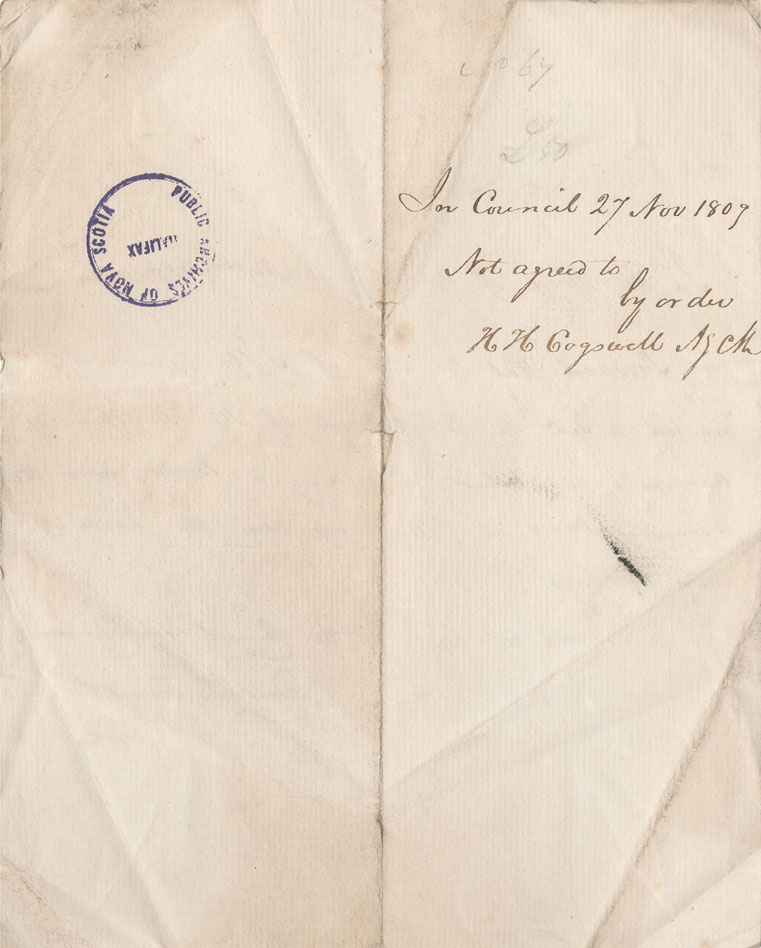 PUBLIC ARCHIVES OF NOVA SCOTIA
HALIFAX
No 67
£50
In Council 27 Nov 1809
Not agreed to
by order
H H Cogswell